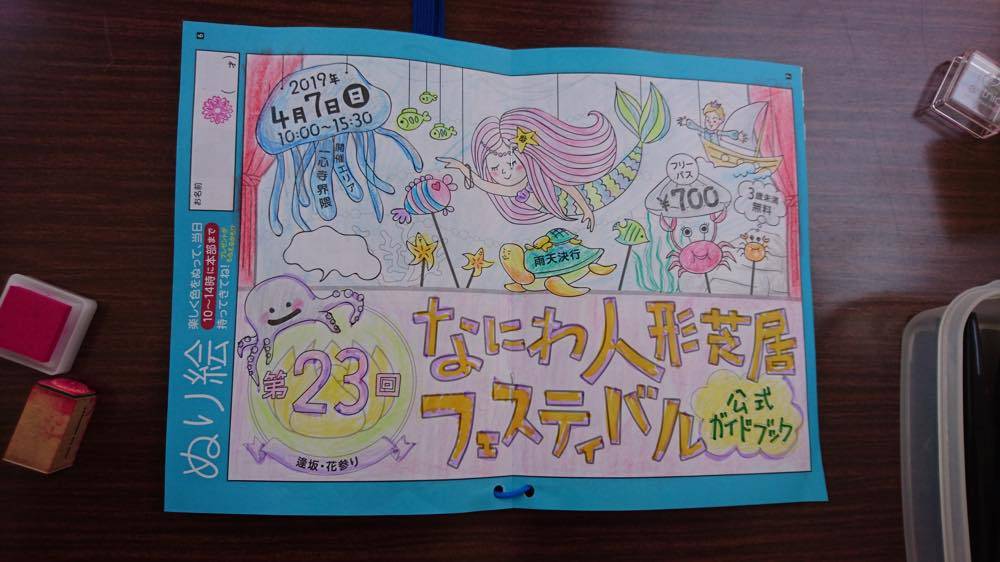 2019年
4月7日(日)
10:00〜15:30
開催エリア
一心寺界隈
フリー
パス
¥700
3歳未満
無料
雨天決行
第23回
逢坂・花参り
なにわ人形芝居
フェスティバル
公式
ガイドブック
ぬり絵
楽しく色をぬって、当日
10〜14時に本部まで
持ってきてね!
お名前
(
才)